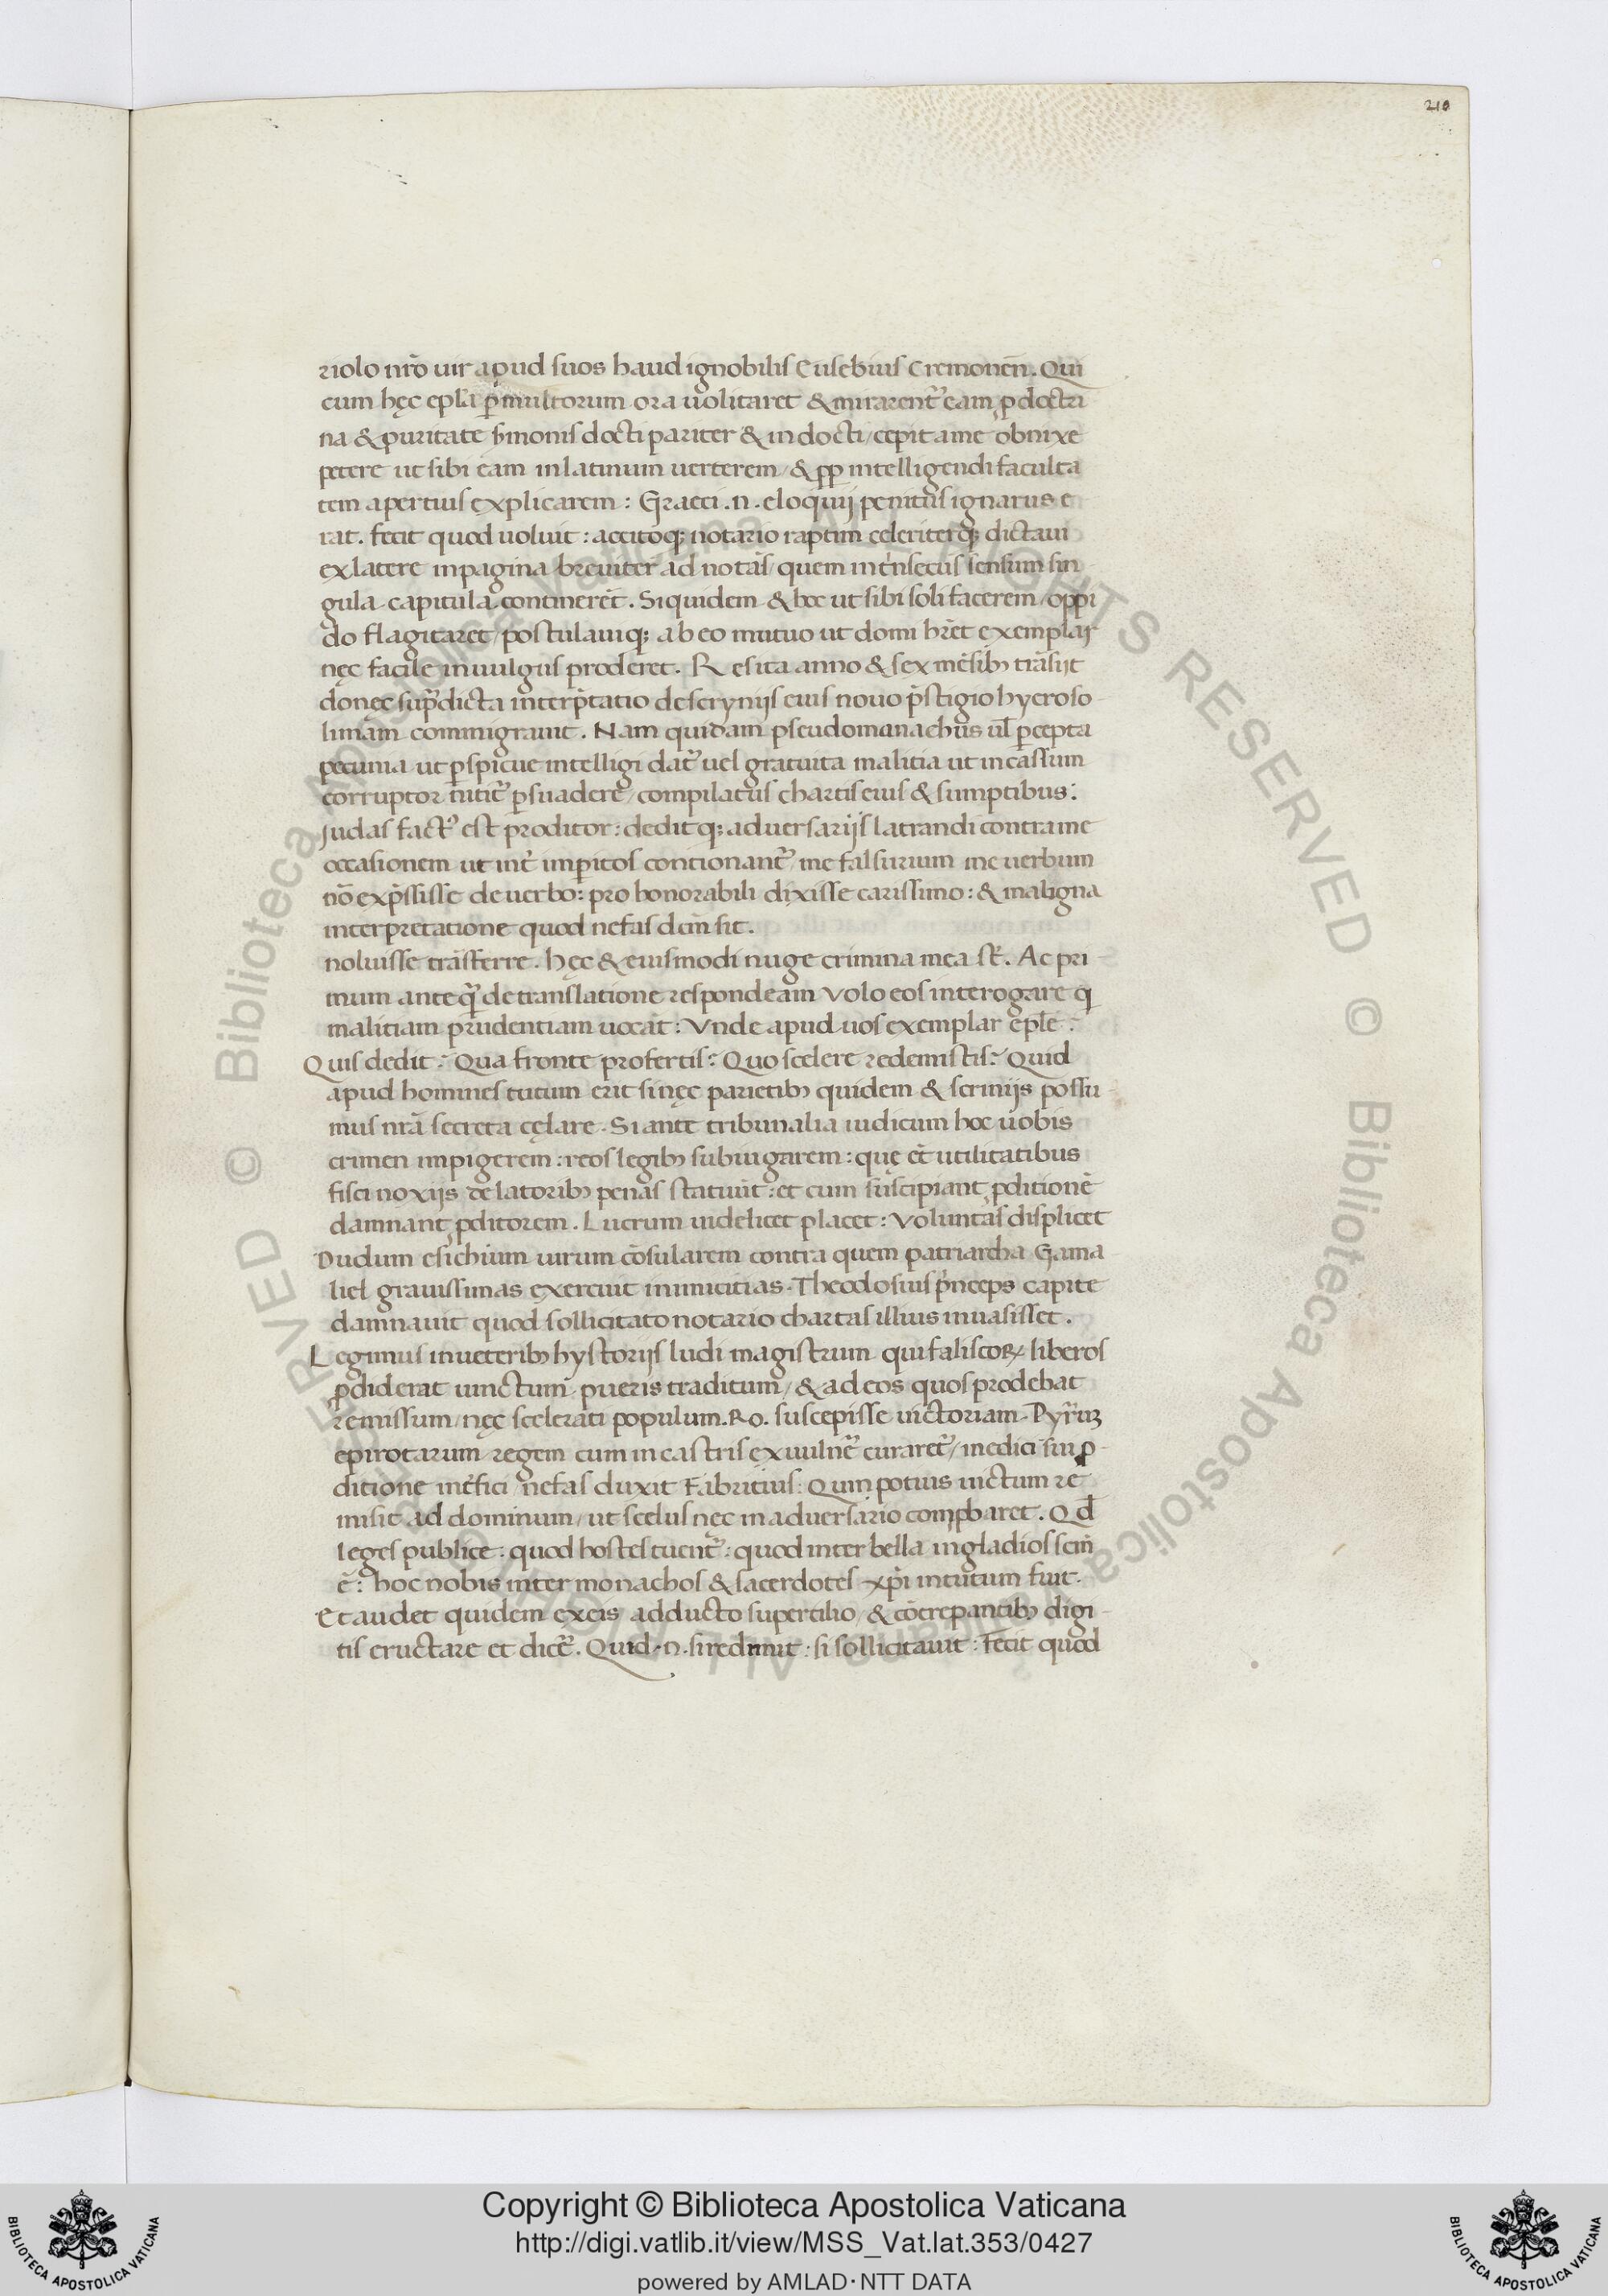 210
riolo nr̄o uir apud suos haud ignobilis Eusebius Cremonen̄. Qui
cum hęc epl̄a ꝑ multorum ora uolitaret & mirarent᷑ eam ꝓ doctri
na & puritate s̄monis docti pariter & in docti / cepit a me obnixe
petere ut sibi eam in latinum uerterem / & ꝓp intelligendi faculta
tem apertius explicarem : Graeci .n. eloquij penitus ignarus e
rat. feci quod uoluit : accitoq; notario raptim celeriterq; dictaui
ex latere in pagina breuiter ad notās / quem int̄nsecus sensum sin
gula capitula continerēt. Siquidem & hoc ut sibi soli facerem / oppi
do flagitaret / postulauiq; ab eo mutuo ut domi hr̄et exemplar
nęc facile in uulgus proderet. Res ita anno & sex mēsib; trāsijt
donęc supᷓdicta interp̄tatio de scrynijs eius nouo p̄stigio hyeroso
limam commigrauit. Nam quidam pseudomonachus ul̄ ꝑcepta
pecunia ut ꝑspicue intelligi dat᷑ uel gratuita malitia ut incassum
corruptor nitit᷑ ꝑsuadere / compilatis chartis eius & sumptibus :
Judas fact᷒ est proditor : dedit q; aduersarijs latrandi contra me
occasionem ut int̄ imꝑitos concionant᷑ me falsarium me uerbum
nō exp̄ssisse de uerbo : pro honorabili dixisse carissimo : & maligna
interpretatione quod nefas dc̄m sit.
noluisse trāsferre. hęc & eiusmodi nuge crimina mea st̄. Ac pri
mum anteqᷓ de translatione respondeam Volo eos interogare q̇
malitiam prudentiam uocāt : Vnde apud uos exemplar epl̄e :
Quis dedit : Qua fronte profertis : Quo scelere redemistis : Quid
apud homines tutum erit si nęc parietib; quidem & scrinijs possu
mus nr̄a secreta cęlare. Si ante tribunalia iudicum hoc uobis
crimen impigerem : reos legib; subiugarem : quę et̄ utilitatibus
fisci noxijs delatorib; penas statuūt : et cum suscipiant ꝓditionē
damnant ꝓditorem. Lucrum uidelicet placet : Voluntas displicet
Dudum esichium uirum cōsularem contra quem patriarcha Gama
liel grauissimas exercuit inimicitias. Theodosius ṗnceps capite
damnauit quod sollicitato notario chartas illius inuasisset.
Legimus in ueterib; hystorijs ludi magistrum qui faliscoꝝ liberos
ꝓdiderat uinctum pueris traditum / & ad eos quos prodebat
remissum / nęc scelerati populum. Ro. suscepisse uictoriam. Pyr̄uꝫ
epirotarum regem cum in castris ex uulner̄ curaret᷑ / medici sui ꝓ
ditione int̄fici / nefas duxit Fabritius : Quin potius uictum re
misit ad dominum / ut scelus nęc in aduersario comꝓbaret. Qd̄
leges publice : quod hostes tuent᷑ : quod inter bella in gladios scm̄
ē : hoc nobis inter monachos & sacerdotes xp̄i intutum fuit.
Et audet quidem ex eis adducto supercilio / & cōcrepantib; digi
tis eructare et dicer̄. Quid .n. si redimit : si sollicitauit : Fecit quod
Copyright © Biblioteca Apostolica Vaticana
http://digi.vatlib.it/view/MSS_Vat.lat.353/0427
powered by AMLAD·NTT DATA
BIBLIOTECA APOSTOLICA VATICANA
BIBLIOTECA APOSTOLICA VATICANA